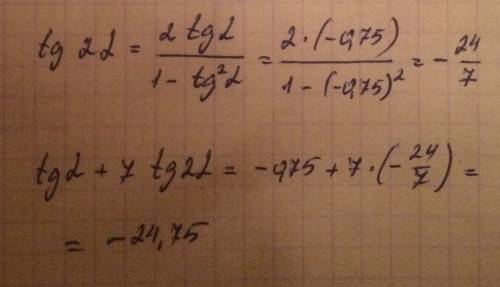 tg 2α = 2 tgα / (1 - tg²α) = 2·(-0,75) / (1 - (-0,75)²) = - 24/7
tgα + 7 tg2α = -0,75 + 7·(-24/7) =
= -24,75